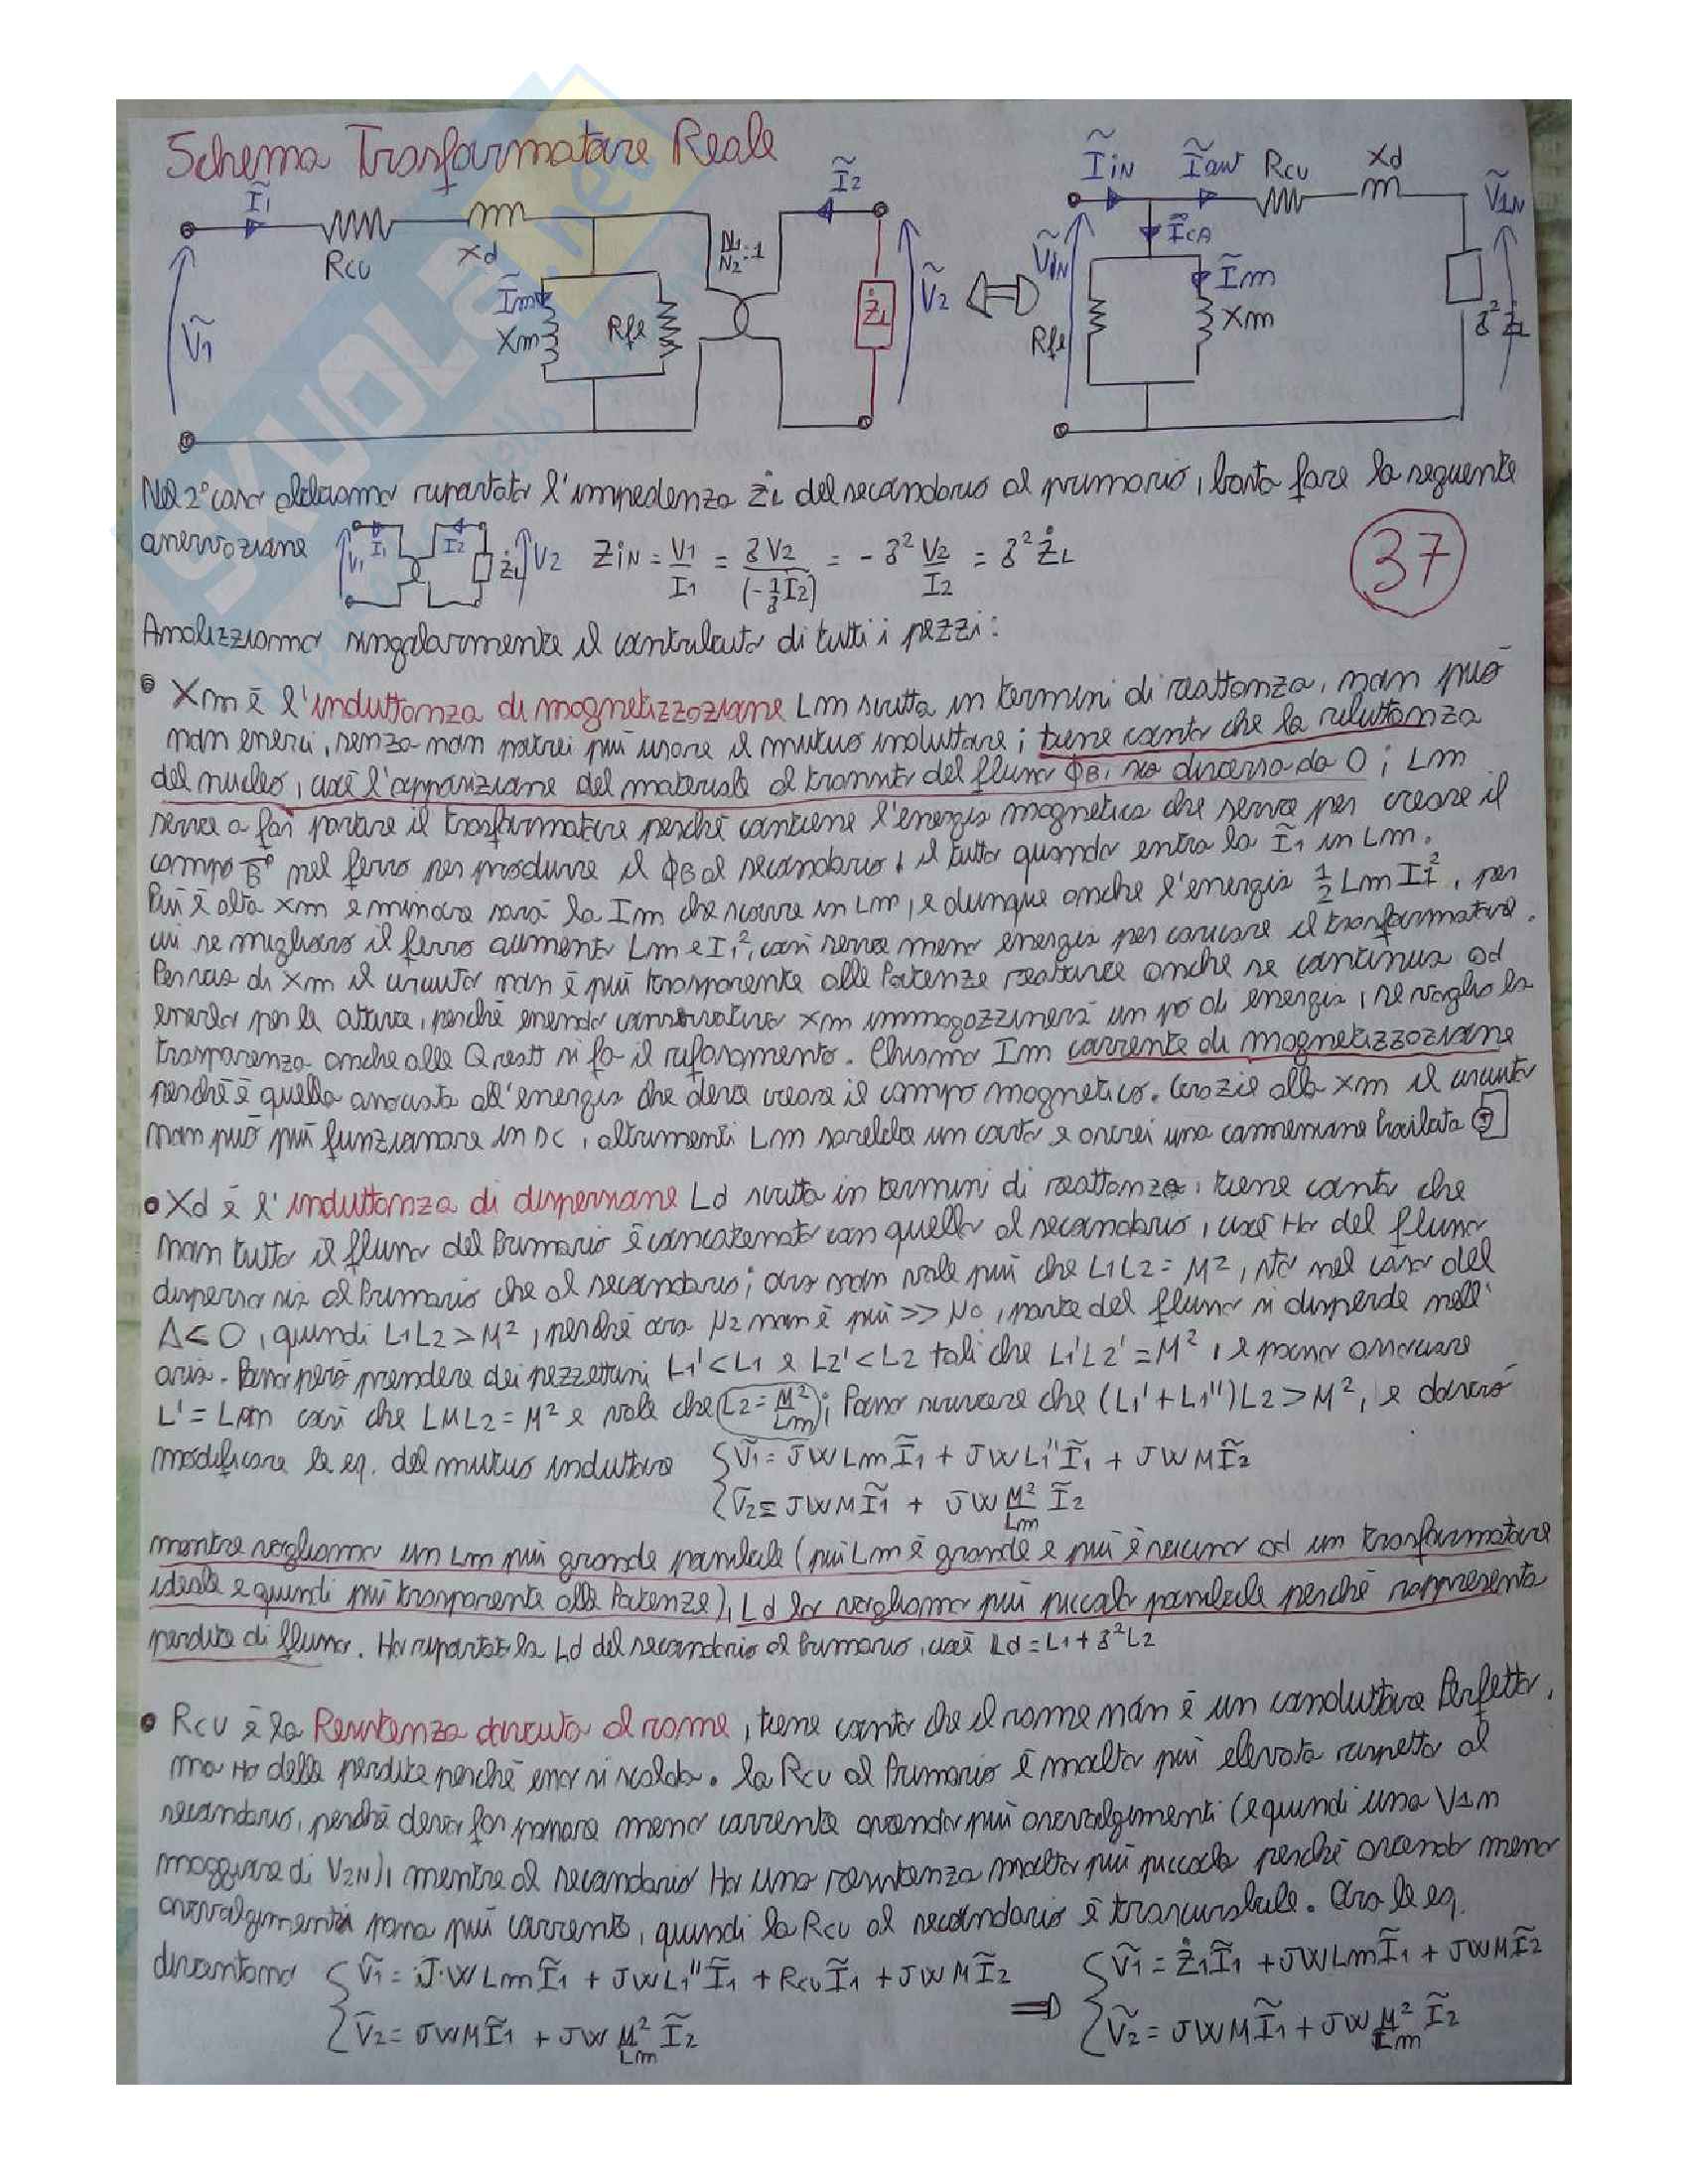 Schema Trasformatore Reale
Ĩ1 Rcu Xd Ĩm Xm Rfe N1/N2:1 Ĩ2 ŻL Ṽ1 Ṽ2
ĨiN Ĩavv Rcu Xd Ṽ1N ĨCA ṼiN Ĩm Rfe Xm ŻL
Nel 2° caso abbiamo riportato l'impedenza ŻL del secondario al primario, basta fare la seguente
osservazione V1 I1 I2 ŻL V2 ZiN = V1/I1 = ȣV2/(-1/ȣ I2) = -ȣ² V2/I2 = ȣ² ŻL
37
Analizziamo singolarmente il contributo di tutti i pezzi:
• Xm è l'induttanza di magnetizzazione Lm scritta in termini di reattanza, non può
non esserci, senza non potrei più usare il mutuo induttore; tiene conto che la riluttanza
del nucleo, cioè l'opposizione del materiale al transito del flusso ΦB, sia diversa da 0; Lm
serve a far portare il trasformatore perché contiene l'energia magnetica che serve per creare il
campo B nel ferro per produrre il ΦB al secondario, il tutto quando entra la Ĩ1 in Lm.
Più è alta Xm e minore sarà la Im che scorre in Lm, e dunque anche l'energia 1/2 Lm Ii², per
cui se miglioro il ferro aumento Lm e I1², così serve meno energia per caricare il trasformatore.
Per via di Xm il circuito non è più trasparente alle Potenze reattive anche se continua ad
esserlo per le attive, perché essendo conservativo Xm immagazzinerà un po di energia, se voglio la
trasparenza anche alle Q reatt si fa il rifasamento. Chiamo Im corrente di magnetizzazione
perché è quella associata all'energia che deve creare il campo magnetico. Grazie alla Xm il circuito
non può più funzionare in DC, altrimenti Lm sarebbe un corto e avrei una connessione
• Xd è l'induttanza di dispersione Ld scritta in termini di reattanza, tiene conto che
non tutto il flusso del Primario è concatenato con quello al secondario, cioè Ho del flusso
disperso sia al Primario che al secondario; ora non vale più che L1L2 = M², sto nel caso del
Δ<0, quindi L1L2 > M², perché ora μ2 non è più >> μ0, parte del flusso si disperde nell'
aria. Posso però prendere dei pezzettini L1' < L1 e L2' < L2 tali che L1'L2' = M², e posso associare
L' = Lm così che LmL2 = M² e vale che L2 = M²/Lm; Posso scrivere che (L1' + L1'')L2 > M², e dovrò
modificare le eq. del mutuo induttore { Ṽ1 = JWLmĨ1 + JWL1''Ĩ1 + JWMĨ2
Ṽ2 = JWMĨ1 + JW M²/Lm Ĩ2
mentre vogliamo un Lm più grande possibile (più Lm è grande e più è vicino ad un trasformatore
ideale e quindi più trasparente alle Potenze), Ld lo vogliamo più piccolo possibile perché rappresenta
perdite di flusso. Ho riportato la Ld del secondario al Primario, cioè Ld = L1 + ȣ²L2
• Rcu è la Resistenza dovuta al rame, tiene conto che il rame non è un conduttore Perfetto,
ma Ho delle perdite perché esso si scalda. la Rcu al Primario è molto più elevata rispetto al
secondario, perché deve far passare meno corrente avendo più avvolgimenti (e quindi una V1n
maggiore di V2N), mentre al secondario Ho una resistenza molto più piccola perché avendo meno
avvolgimenti passa più corrente, quindi la Rcu al secondario è trascurabile. Ora le eq.
diventano { Ṽ1 = J·WLmĨ1 + JWL1''Ĩ1 + RcuĨ1 + JWMĨ2
Ṽ2 = JWMĨ1 + JW M²/Lm Ĩ2
⇒ { Ṽ1 = Ż1Ĩ1 + JWLmĨ1 + JWMĨ2
Ṽ2 = JWMĨ1 + JW M²/Lm Ĩ2